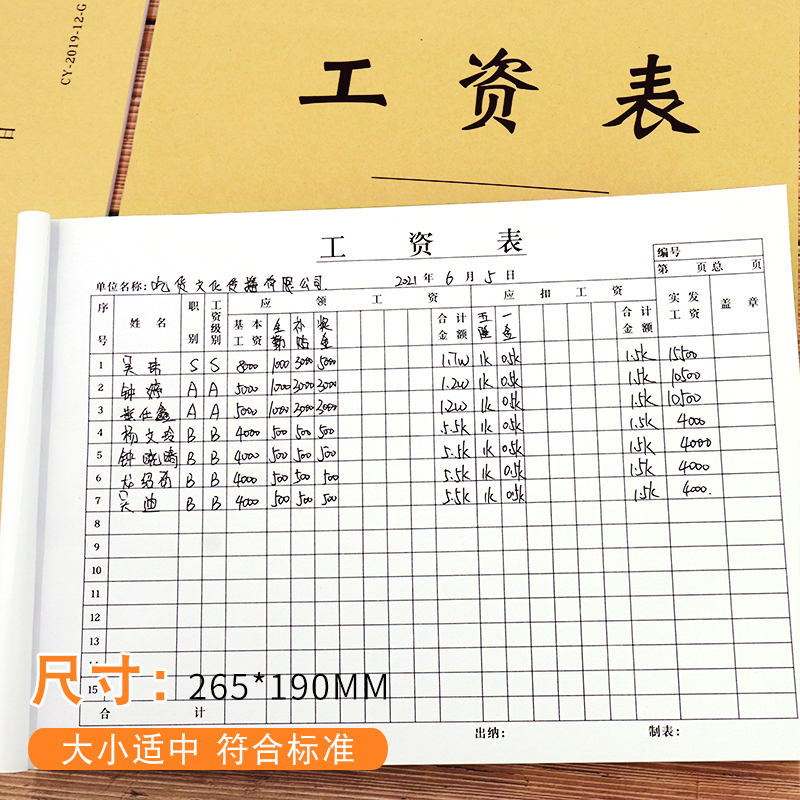 CY-2019-12-G
工资表
工资表
编号
第 页总 页
单位名称:吃货文化传播有限公司. 2021年6月5日
序号 姓名 职别 工资级别 应领工资 应扣工资 实发工资 盖章
基本工资 全勤 补贴 奖金 合计金额 五险 一金 合计金额
1 吴 S S 8000 1000 3000 5000 1.7W 1K 0.5K 1.5K 15500
2 钟婷 A A 5000 1000 3000 3000 1.2W 1K 0.5K 1.5K 10500
3 A A 5000 1000 3000 3000 1.2W 1K 0.5K 1.5K 10500
4 杨文玲 B B 4000 500 500 500 5.5K 1K 0.5K 1.5K 4000
5 钟晓晴 B B 4000 500 500 500 5.5K 1K 0.5K 1.5K 4000
6 B B 4000 500 500 500 5.5K 1K 0.5K 1.5K 4000
7 吴迪 B B 4000 500 500 500 5.5K 1K 0.5K 1.5K 4000.
8
9
10
11
12
13
15
合计
出纳: 制表:
尺寸:265*190MM
大小适中 符合标准